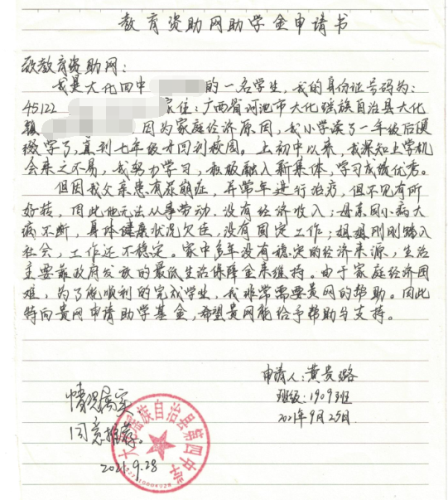 教育资助网助学金申请书
致教育资助网：
我是大化四中 的一名学生，我的身份证号码为：
45122 家住：广西省河池市大化瑶族自治县大化
镇 因为家庭经济原因，我小学读了一年级后便
辍学了，直到七年级才回到校园。上初中以来，我深知上学机
会来之不易，我努力学习，积极融入新集体，学习成绩优秀。
但因我父亲患有尿崩症，并常年进行治疗，但不见有所
好转，因此他无法从事劳动，没有经济收入；母亲因小病大
病不断，身体健康状况欠佳，没有固定工作；姐姐刚刚踏入
社会，工作还不稳定。家中多年没有稳定的经济来源，生活
主要靠政府发放的最低生活保障金来维持。由于家庭经济困
难，为了能顺利的完成学生，我非常需要贵网的帮助。因此
特向贵网申请助学基金，希望贵网能给予帮助与支持。
申请人：黄贵璐
班级：1909班
2021年9月25日
情况属实
同意推荐。
2021.9.28
大化瑶族自治县第四中学